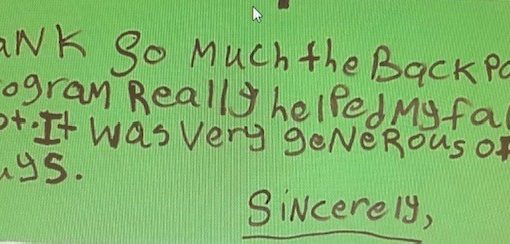 aNK So Much the BackPa
ogram Really helped My fa
ot. It was very geNeRous of
ys.
SiNcerely,